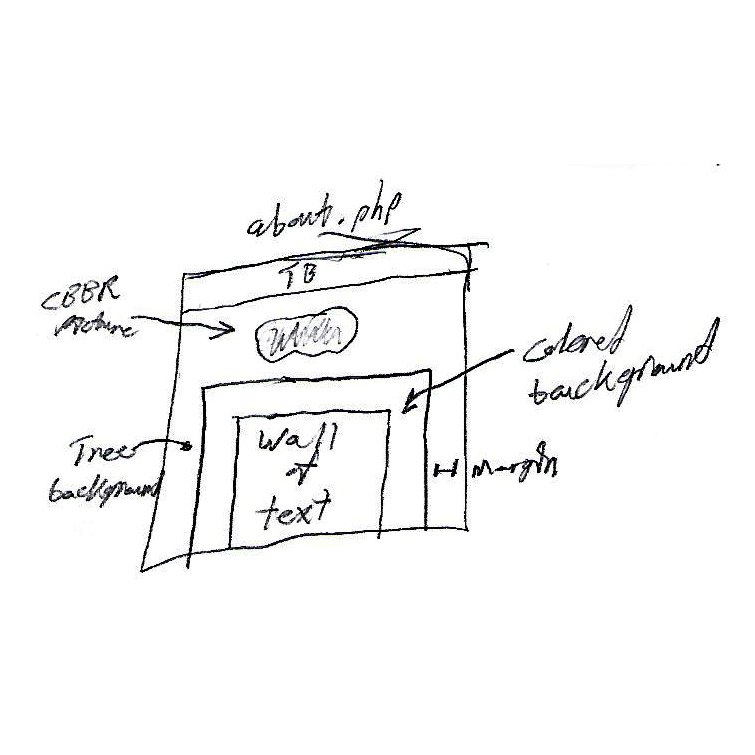 about.php
TB
CBBR
Picture
Colored
background
Tree
background
Wall
of
text
Margin